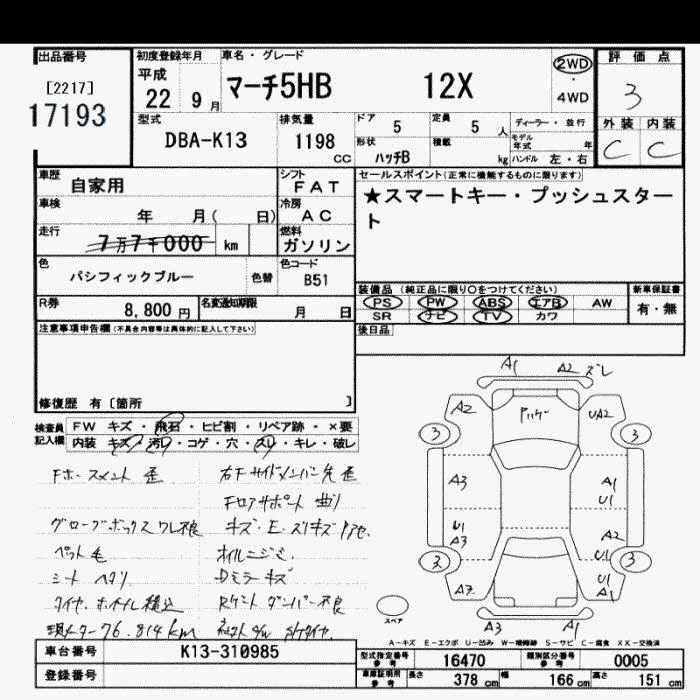 出品番号 初度登録年月 車名・グレード 評価点
[2217] 平成 マーチ5HB 12X 2WD 3
17193 22 9 月 4WD
型式 排気量 ドア 定員 ディーラー・並行 外装 内装
DBA-K13 1198 cc 5 5 人 モデル年式 年 C C
形状 積載
ハッチB kg ハンドル 左・右
車歴 自家用 シフト FAT セールスポイント(正常に機能するものに限ります)
車検 年 月( 日) 冷房 AC ★スマートキー・プッシュスタート
走行 7万7千000 km 燃料 ガソリン
色 パシフィックブルー 色替 色コード B51
R券 8,800 円 名変通知期限 月 日 装備品 (純正品に限り○をつけてください) 新車保証書
PS PW ABS エアB AW 有・無
SR ナビ TV カワ
注意事項申告欄(不具合内容等は具体的に記入して下さい) 後日品
修復歴 有 [箇所 ]
検査員記入欄 FW キズ・飛石・ヒビ割・リペア跡・×要
内装 キズ・汚レ・コゲ・穴・スレ・キレ・破レ
Fホースメント 歪 右Fサイドメンバー先 歪
Fロアサポート 曲り
グローブボックス ワレ 不良
ペット毛 オイルニジミ
シート ヘタリ Dミラーキズ
タイヤ、ホイル積込 Rゲート ダンパー不良
現メーター76,814km
A1 A2 ズレ
A2 UA2
3 3
A3 A1
U1
U1 A2
A3 U1
3 3
A3 U1
A1
A3 A1
スペア
A-キズ E-エクボ U-凹み W-補修跡 S-サビ C-腐食 XX-交換済
車台番号 K13-310985 型式指定番号 参考 16470 類別区分番号 参考 0005
登録番号 車庫証明用 参考 長さ 378 cm 幅 166 cm 高さ 151 cm